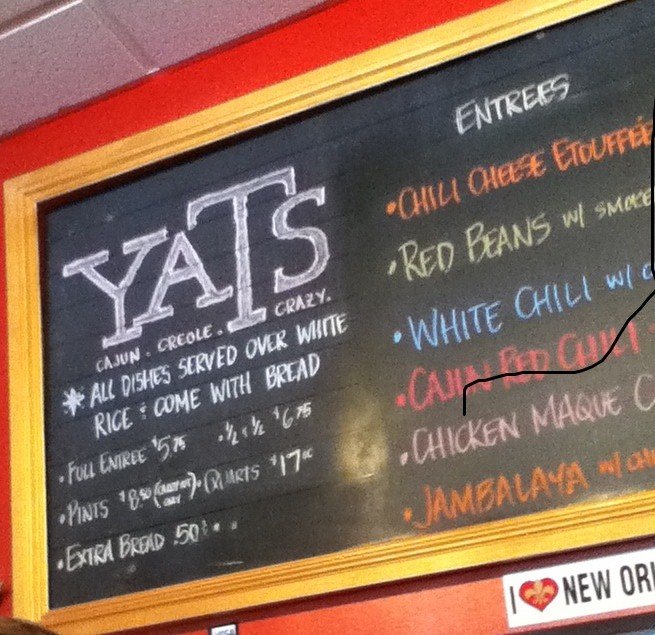 YATS
CAJUN. CREOLE. CRAZY.
* ALL DISHES SERVED OVER WHITE
RICE & COME WITH BREAD
• FULL ENTREE $5.75 • ½ & ½ $6.75
• PINTS $8.50 • QUARTS $17.00
• EXTRA BREAD .50¢
ENTREES
• CHILI CHEESE ETOUFFÉE
• RED BEANS W/ SMOKE
• WHITE CHILI W/
• CAJUN RED CHILI
• CHICKEN MAQUE C
• JAMBALAYA W/
I NEW ORL